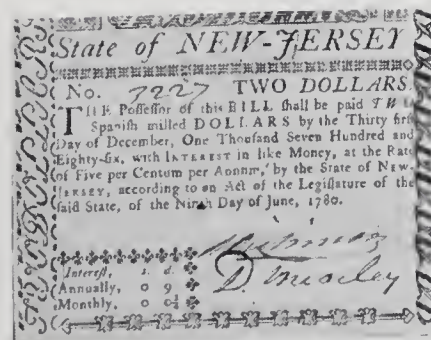 State of NEW-JERSEY
No. 7227 TWO DOLLARS.
THE Possessor of this BILL shall be paid TWO
Spanish milled DOLLARS by the Thirty first
Day of December, One Thousand Seven Hundred and
Eighty-six, with INTEREST in like Money, at the Rate
of Five per Centum per Annum, by the State of NEW-
JERSEY, according to an Act of the Legislature of the
said State, of the Ninth Day of June, 1780.
Interest, s. d.
Annually, 0 9
Monthly, 0 0¾